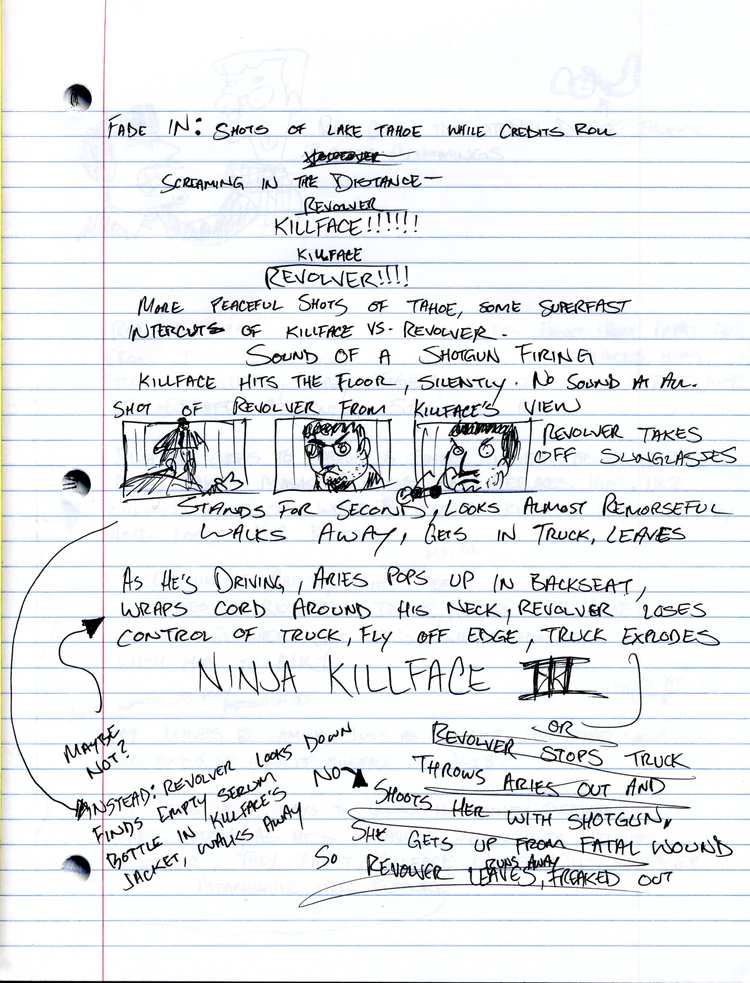 FADE IN: SHOTS OF LAKE TAHOE WHILE CREDITS ROLL
SCREAMING IN THE DISTANCE—
REVOLVER
KILLFACE!!!!!!
KILLFACE
REVOLVER!!!!
MORE PEACEFUL SHOTS OF TAHOE, SOME SUPERFAST
INTERCUTS OF KILLFACE VS. REVOLVER.
SOUND OF A SHOTGUN FIRING
KILLFACE HITS THE FLOOR, SILENTLY. NO SOUND AT ALL.
SHOT OF REVOLVER FROM KILLFACE'S VIEW
REVOLVER TAKES
OFF SUNGLASSES
STANDS FOR SECOND, LOOKS ALMOST REMORSEFUL
WALKS AWAY, GETS IN TRUCK, LEAVES
AS HE'S DRIVING, ARIES POPS UP IN BACKSEAT,
WRAPS CORD AROUND HIS NECK, REVOLVER LOSES
CONTROL OF TRUCK, FLY OFF EDGE, TRUCK EXPLODES
NINJA KILLFACE III
MAYBE
NOT?
INSTEAD: REVOLVER LOOKS DOWN
FINDS EMPTY SERUM
BOTTLE IN KILLFACE'S
JACKET, WALKS AWAY
OR
REVOLVER STOPS TRUCK
NO
THROWS ARIES OUT AND
SHOOTS HER WITH SHOTGUN,
SHE GETS UP FROM FATAL WOUND
SO REVOLVER RUNS AWAY
LEAVES, FREAKED OUT